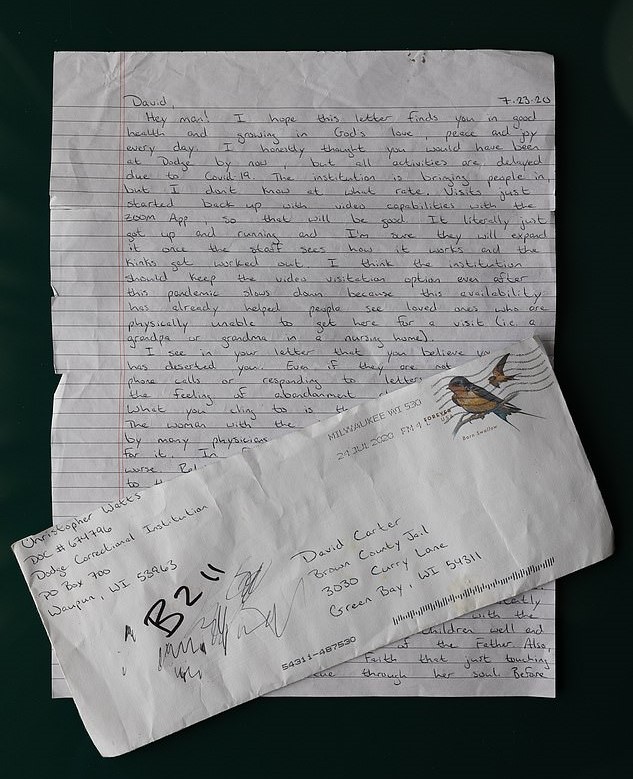 David,
7-23-20
Hey man! I hope this letter finds you in good
health and growing in God's love, peace and joy
every day. I honestly thought you would have been
at Dodge by now, but all activities are delayed
due to Covid 19. The institution is bringing people in,
but I dont know at what rate. Visits just
started back up with video capabilities with the
zoom App, so that will be good. It literally just
got up and running and I'm sure they will expand
it once the staff sees how it works and the
kinks get worked out. I think the institution
should keep the video visitation option even after
this pandemic slows down because this availability
has already helped people see loved ones who are
physically unable to get here for a visit (i.e. a
grandpa or grandma in a nursing home).
I see in your letter that you believe
has deserted you. Even if they are not
phone calls or responding to letters
the feeling of abandonment
What you cling to is the
The woman with the
by many physicians
for it. In
worse.
to
MILWAUKEE WI 530
24 JUL 2020 PM 4
FOREVER
USA
Barn Swallow
Christopher Watts
DOC # 674796
Dodge Correctional Institution
PO Box 700
Waupun, WI 53963
B211
David Carter
Brown County Jail
3030 Curry Lane
Green Bay, WI 54311
54311-487530
with the
children well and
of the Father. Also,
Faith that just touching
through her soul. Before